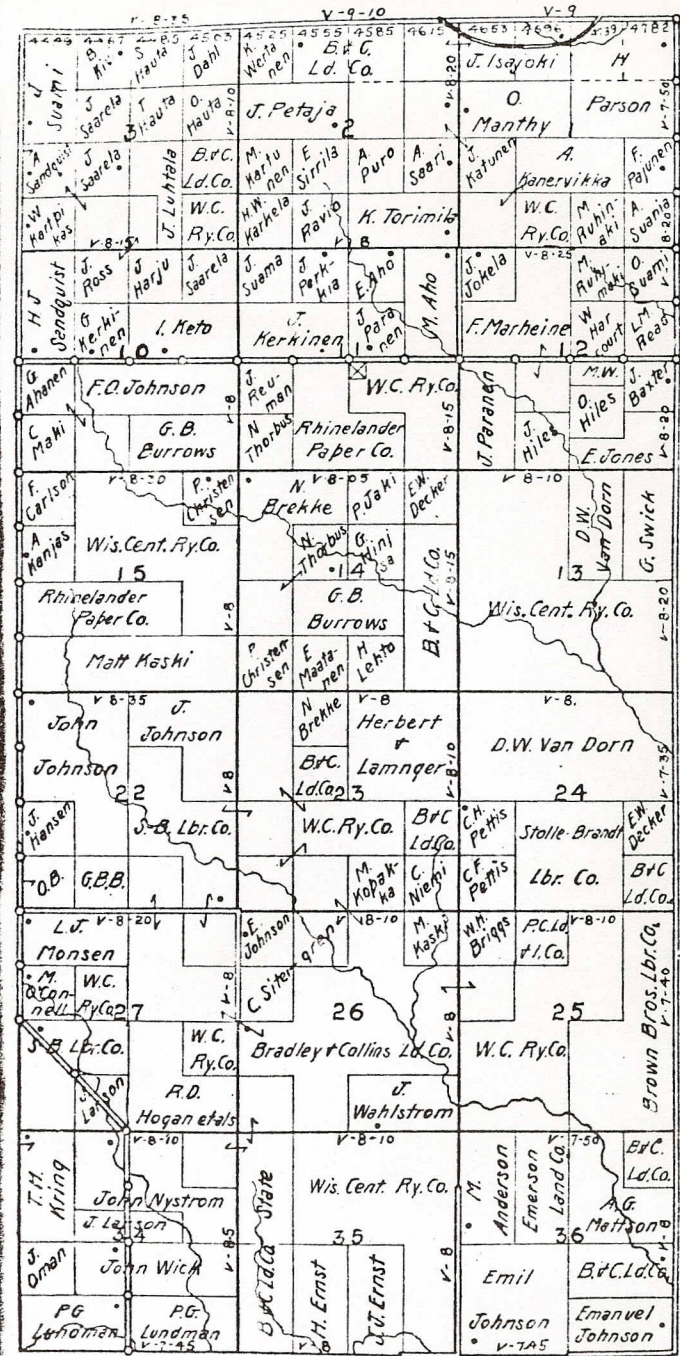 V-8-35
V-9-10
V-9
4449 4467 4485 4503 4525 4555 4585 4615 4653 4696 4739 4782
J Suami
S. Hauta
J. Dahl
K. Werta nen
B.&C. Ld. Co.
V-8-20
J. Isajoki
H Parson
V-7-50
J Saarela
T Hauta
O. Hauta
V-8-10
J. Petaja
O. Manthy
3
2
1
A Sandquist
J. Saarela
J. Luhtala
B.&C. Ld. Co.
M. Kartu nen
E Sirrila
A. Puro
A. Saari
J. Katunen
A. Kanervikka
F. Pajunen
W Kartpi kas
W.C. Ry. Co.
H.W. Karkela
J. Ravio
K. Torimila
W.C. Ry. Co.
M. Ruhin- aki
A. Suania
8-20
V-8-15
V 8
V-8-25
H J Sandquist
J. Ross
J Harju
J. Saarela
J. Suama
J Perk- kia
E. Aho
M. Aho
J. Jokela
M. Ruhy- maki
O. Suami
G. Kerki- nen
I. Keto
J. Kerkinen
J. Para nen
F. Marheine
W Har court
L.M. Read
10
11
12
G. Ahanen
F.O. Johnson
V-8
J. Reu- man
W.C. Ry. Co.
V-8-15
J. Paranen
M.W.
O. Hiles
J. Baxter
C Maki
G.B. Burrows
N Thorbus
Rhinelander Paper Co.
J. Hiles
E. Jones
V-8-20
V-8-20
V-8-05
V 8-10
F. Carlson
P. Christen sen
N. Brekke
P. Jaki
E.W. Decker
D.W. Van Dorn
G. Swick
A Kanjas
Wis. Cent. Ry. Co.
N Thorbus
G. Hinj sa
B.&C. Ld. Co.
V-8-15
15
14
13
Rhinelander Paper Co.
V-8
G.B. Burrows
Wis. Cent. Ry. Co.
V-8-20
Matt Kaski
P Christen sen
E Maata- nen
H Lehto
V-8-35
V-8
V-8.
John Johnson
J. Johnson
N Brekke
Herbert & Lamnger
D.W. Van Dorn
V8
B&C. Ld. Co.
V-8-10
V-7-35
22
23
24
J. Hansen
S.-B. Lbr. Co.
W.C. Ry. Co.
B&C Ld. Co.
C.H. Pettis
Stolle-Brandt Lbr. Co.
E.W. Decker
O.B.
G.B.B.
M. Kopak- ka
C. Niemi
C.F. Pettis
B&C Ld. Co.
V-8-20
8-10
V-8-10
L.J. Monsen
E. Johnson
M. Kaski
W.H. Briggs
P.C. Ld & I. Co.
M. O'Con- nell
W.C. Ry Co.
V-8
C. Siter- gren
Brown Bros. Lbr. Co.
V-7-40
27
26
25
S B Lbr. Co.
W.C. Ry. Co.
Bradley & Collins Ld. Co.
V-8
W.C. Ry. Co.
J. Larson
R.D. Hogan etals
J. Wahlstrom
V-8-10
V-8-10
V-7-50
T.H. Kring
John Nystrom
State
Wis. Cent. Ry. Co.
M. Anderson
Emerson Land Co.
B&C. Ld. Co.
J. Larson
V-8-5
A.G. Mattson
V-8
34
35
36
J. Oman
John Wick
B & C Ld. Co
H. Ernst
J.J. Ernst
V-8
Emil Johnson
B.&C. Ld. Co.
P.G. Lundman
P.G. Lundman
Emanuel Johnson
V-7-45
V-8
V-7A5